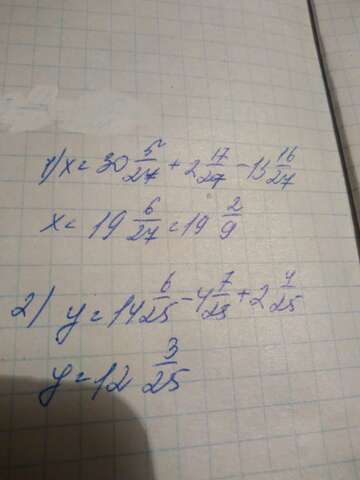 1) x = 30 5/27 + 2 17/27 - 13 16/27
x = 19 6/27 = 19 2/9
2) y = 14 6/25 - 4 7/25 + 2 4/25
y = 12 3/25